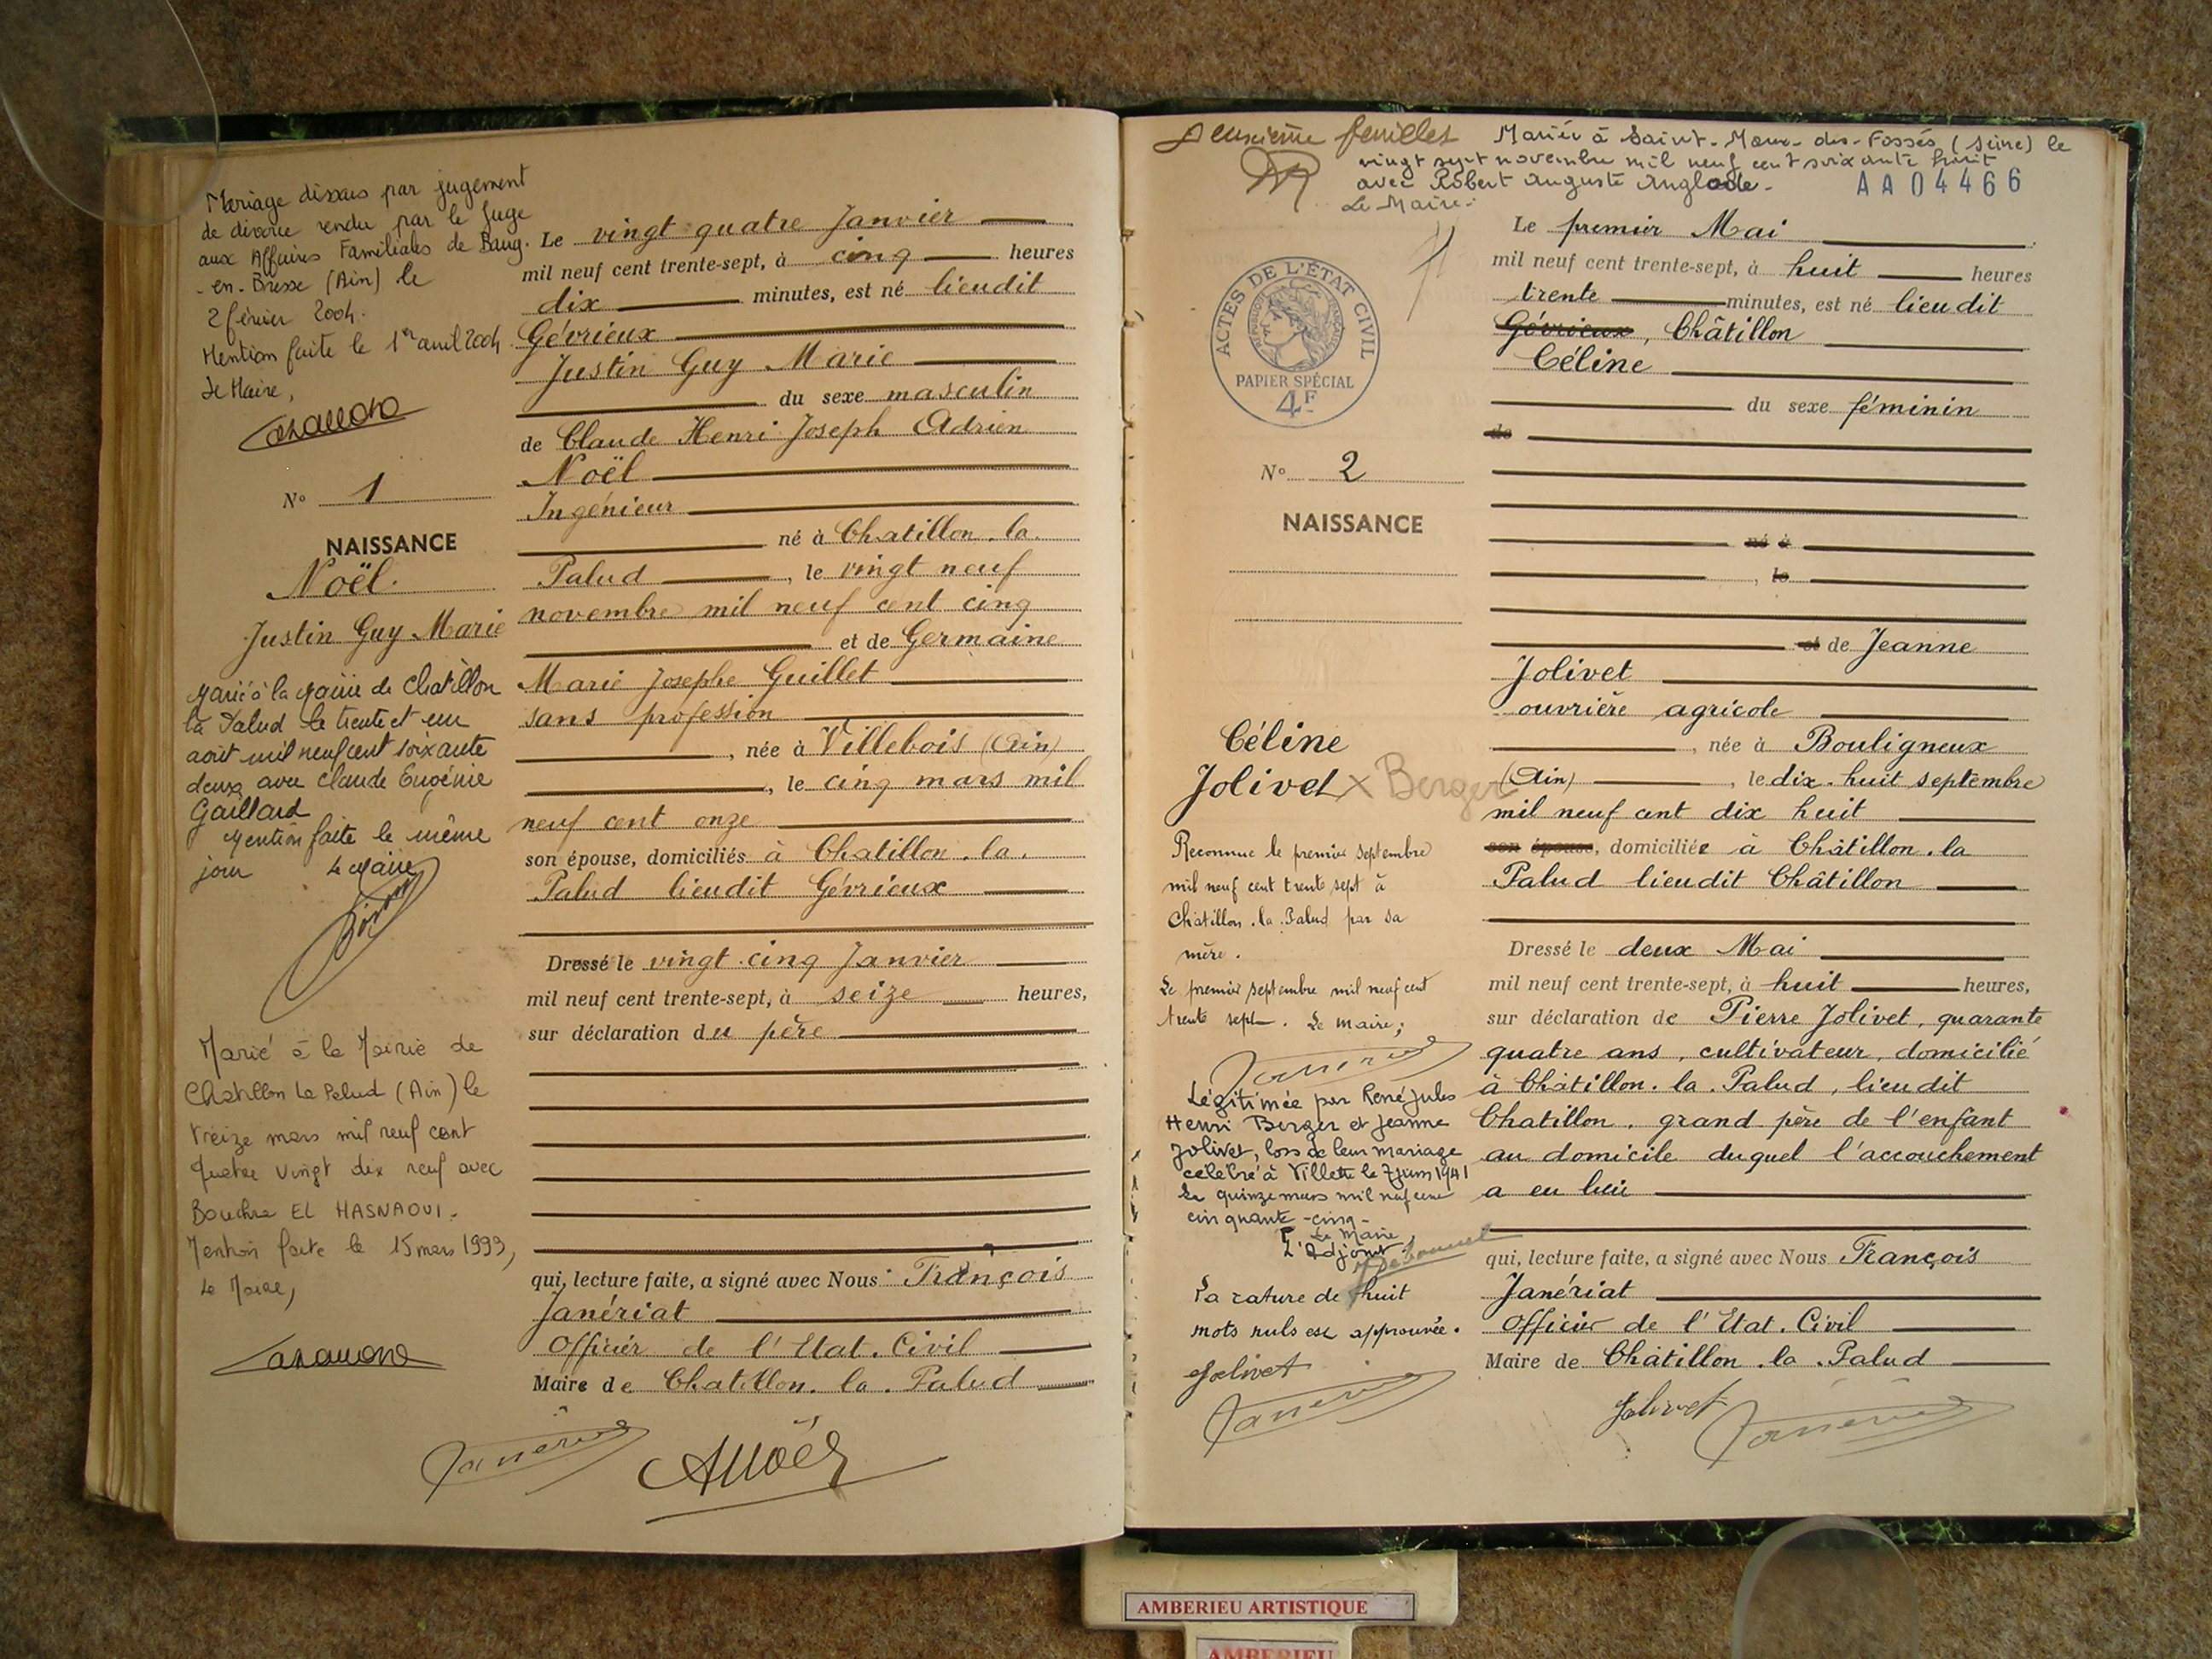 Mariage dissous par jugement
de divorce rendu par le Juge
aux Affaires Familiales de Bourg
-en-Bresse (Ain) le
2 février 2004.
Mention faite le 1er avril 2004
Le Maire,
N° 1
NAISSANCE
Noël.
Justin Guy Marie
Marié à la Mairie de Chatillon
la Palud le trente et un
août mil neuf cent soixante
deux avec Claude Eugénie
Gaillard
Mention faite le même
jour Le Maire
Marié à la Mairie de
Chatillon La Palud (Ain) le
treize mars mil neuf cent
quatre vingt dix neuf avec
Bouchra EL HASNAOUI.
Mention faite le 15 mars 1999,
Le Maire,
Le vingt quatre Janvier
mil neuf cent trente-sept, à cinq heures
dix minutes, est né lieudit
Gévrieux
Justin Guy Marie
du sexe masculin
de Claude Henri Joseph Adrien
Noël
Ingénieur
né à Chatillon.la.
Palud, le vingt neuf
novembre mil neuf cent cinq
et de Germaine
Marie Josephe Guillet
sans profession
, née à Villebois (Ain)
, le cinq mars mil
neuf cent onze
son épouse, domiciliés à Chatillon.la.
Palud lieudit Gévrieux
Dressé le vingt.cinq Janvier
mil neuf cent trente-sept, à seize heures,
sur déclaration du père
qui, lecture faite, a signé avec Nous François
Janériat
Officier de l'Etat.Civil
Maire de Chatillon.la.Palud
ANoël
Deuxième feuillet
Mariée à Saint-Maur-des-Fossés (Seine) le
vingt sept novembre mil neuf cent soixante huit
avec Robert Auguste Anglade.
Le Maire.
AA04466
ACTES DE L'ÉTAT CIVIL
RÉPUBLIQUE FRANÇAISE
PAPIER SPÉCIAL
4F
N° 2
NAISSANCE
Céline
Jolivet x Berger
Reconnue le premier septembre
mil neuf cent trente sept à
Châtillon.la.Palud par sa
mère.
Le premier septembre mil neuf cent
trente sept. Le maire;
Légitimée par René Jules
Henri Berger et Jeanne
Jolivet, lors de leur mariage
célébré à Villette le 7 juin 1941
Le quinze mars mil neuf cent
cinquante-cinq-
Le Maire
L'Adjoint
La rature de huit
mots nuls est approuvée.
Jolivet
Le premier Mai
mil neuf cent trente-sept, à huit heures
trente minutes, est né lieudit
Gévrieux, Châtillon
Céline
du sexe féminin
de
né à
, le
et de Jeanne
Jolivet
ouvrière agricole
, née à Bouligneux
(Ain), le dix-huit septembre
mil neuf cent dix huit
son épouse, domiciliée à Châtillon.la
Palud lieudit Châtillon
Dressé le deux Mai
mil neuf cent trente-sept, à huit heures,
sur déclaration de Pierre Jolivet, quarante
quatre ans, cultivateur, domicilié
à Châtillon.la.Palud, lieudit
Chatillon. grand père de l'enfant
au domicile duquel l'accouchement
a eu lieu
qui, lecture faite, a signé avec Nous François
Janériat
Officier de l'Etat.Civil
Maire de Châtillon.la.Palud
Jolivet
AMBERIEU ARTISTIQUE
AMBERIEU